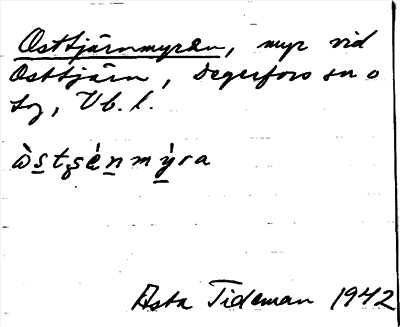 Osttjärnmyran, myr vid
Osttjärn, Degerfors sn o
tg, Vb. l.
ὼs̲tʂèn̲mỳ̲ra
Asta Tideman 1942